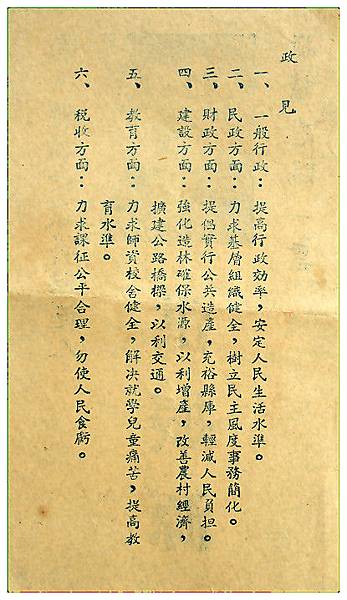 政見
一、一般行政：提高行政效率，安定人民生活水準。
二、民政方面：力求基層組織健全，樹立民主風度事務簡化。
三、財政方面：提倡實行公共造產，充裕縣庫，輕減人民負担。
四、建設方面：強化造林確保水源，以利增產，改善農村經濟，
擴建公路橋樑，以利交通。
五、教育方面：力求師資校舍健全，解決就學兒童痛苦，提高教
育水準。
六、稅收方面：力求課征公平合理，勿使人民食虧。